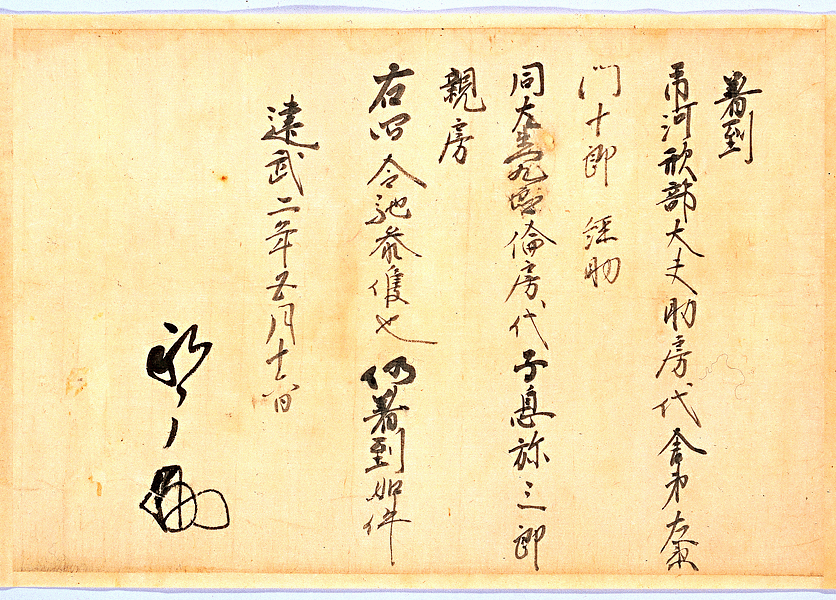 着到
市河刑部大夫助房代舎弟左衛
門十郎 経助
同大炊左衛門倫房代子息弥三郎
親房
右囚令馳参候也仍着到如件
建武二年五月十六日